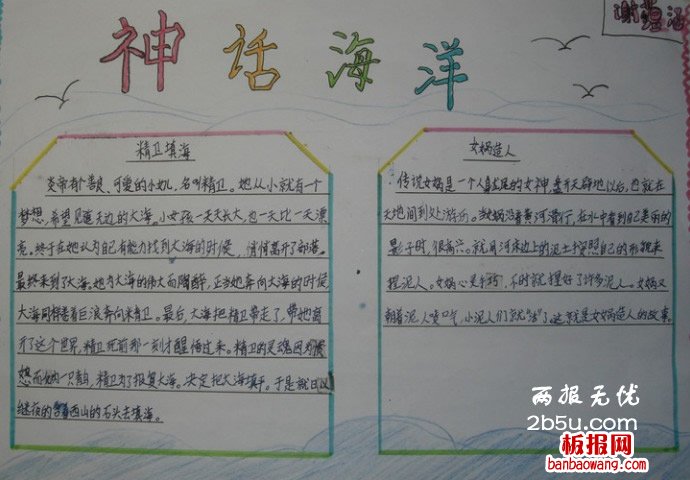 神话海洋
精卫填海
炎帝有个善良、可爱的小女儿,名叫精卫。她从小就有一个
梦想,希望见无边的大海。小女孩一天天长大,也一天比一天漂
亮。终于在她认为自己有能力找到大海的时候,悄悄离开了部落。
最终来到了大海,她为大海的伟大而陶醉,正当她奔向大海的时候
大海同样卷着巨浪奔向精卫。最后,大海把精卫带走了,带她离
开了这个世界,精卫死前那一刻才醒悟过来。精卫的灵魂因为
想而如一只鸟,精卫为了报复大海。决定把大海填平。于是就日以
继夜的含着西山的石头去填海。
女娲造人
传说女娲是一个人首龙尾的女神,盘开天辟地以后,她就在
天地间到处游历。当女娲沿着黄河滑行,在水中看到自己美丽的
影子时,很高兴。就用河床边上的泥土按照自己的形貌来
捏泥人。女娲心灵手巧,不时就捏好了许多泥人。女娲又
朝着泥人喷口气,小泥人们就"活"了。这就是女娲造人的故事
两报无忧
2b5u.com
板报网
banbaowang.com